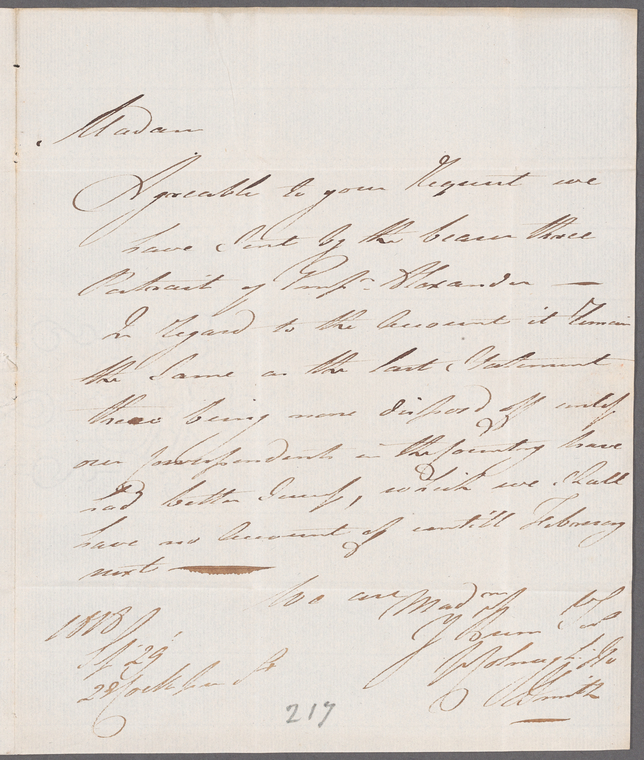 Madam
Agreable to your Request we
have Sent by the bearer three
Portrait of Empr. Alexander —
In Regard to the Account it Remain
the Same as the last Statement
there being none disposed off unless
our Correspondents in the Country have
had better Success, which we Shall
have no Account of untill February
next
We are Madm
Yr Hum Ser
P Colnaghi & Co
Smith
1818
Sp 29
23 Cockspur St
217